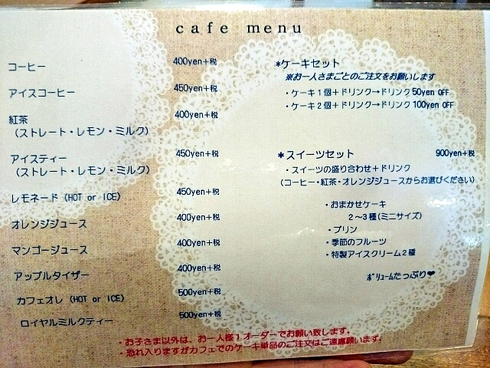 cafe menu
コーヒー 400yen+税
アイスコーヒー 450yen+税
紅茶 400yen+税
（ストレート・レモン・ミルク）
アイスティー 450yen+税
（ストレート・レモン・ミルク）
レモネード（HOT or ICE） 450yen+税
オレンジジュース 400yen+税
マンゴージュース 400yen+税
アップルタイザー 400yen+税
カフェオレ（HOT or ICE） 500yen+税
ロイヤルミルクティー 500yen+税
*ケーキセット
※お一人さまごとのご注文をお願いします
・ケーキ1個+ドリンク→ドリンク50yen OFF
・ケーキ2個+ドリンク→ドリンク100yen OFF
*スイーツセット 900yen+税
・スイーツの盛り合わせ+ドリンク
（コーヒー・紅茶・オレンジジュースからお選びください）
・おまかせケーキ
2〜3種（ミニサイズ）
・プリン
・季節のフルーツ
・特製アイスクリーム2種
ﾎﾞﾘｭｰﾑたっぷり❤
・お子さま以外は、お一人様1オーダーでお願い致します。
・恐れ入りますがカフェでのケーキ単品のご注文はご遠慮願います。